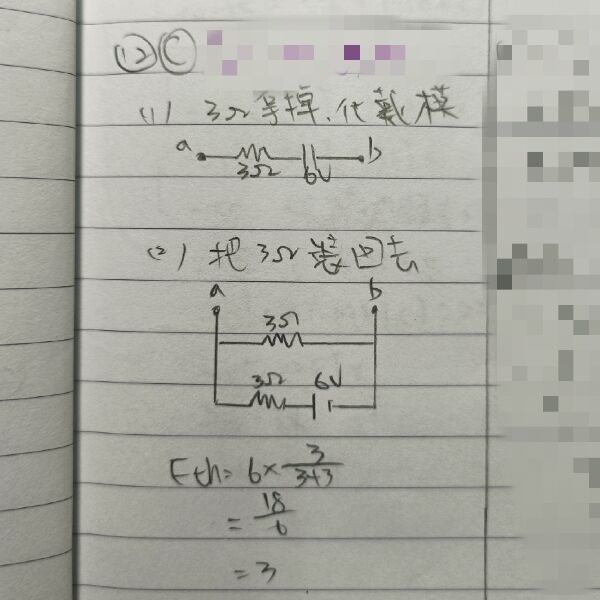 (2) C
(1) 3Ω拿掉、代戴模
a 3Ω 6V b
(2) 把3Ω裝回去
a b
3Ω
3Ω 6V
Eth = 6 × 3/(3+3)
= 18/6
= 3